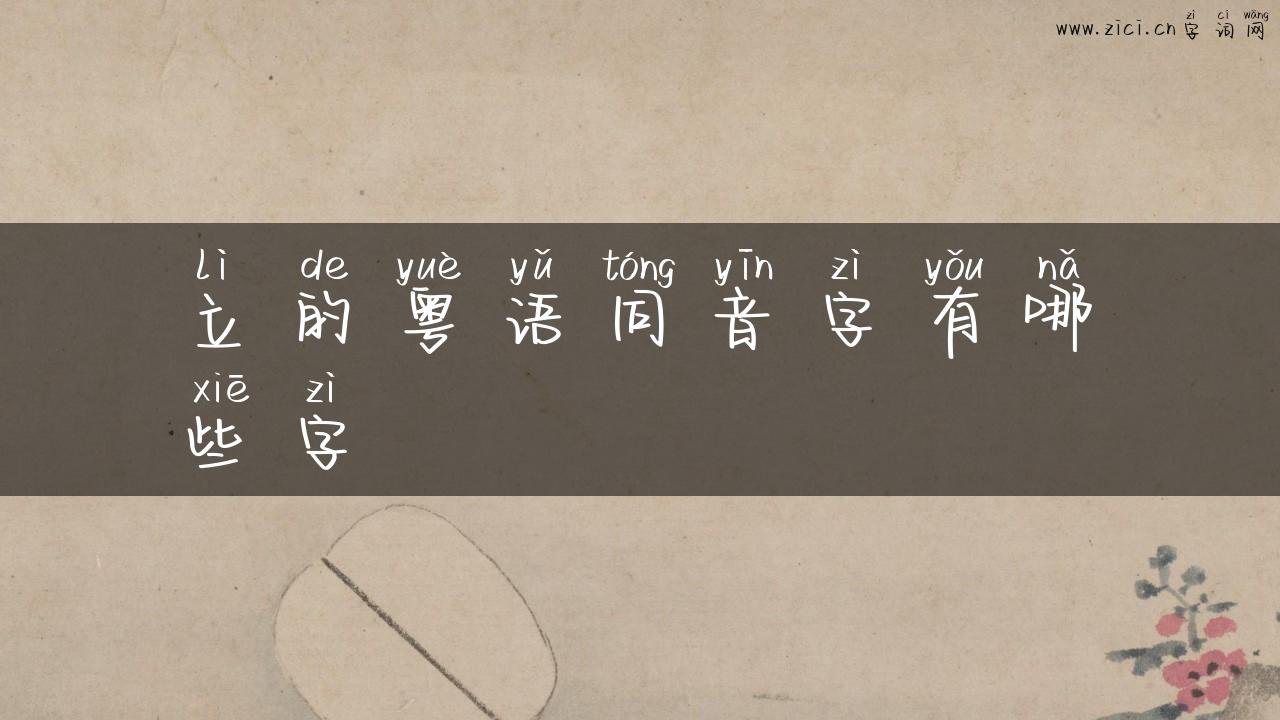 zì cí wǎng
www.zici.cn字词网
lì de yuè yǔ tóng yīn zì yǒu nǎ
立的粤语同音字有哪
xiē zì
些字